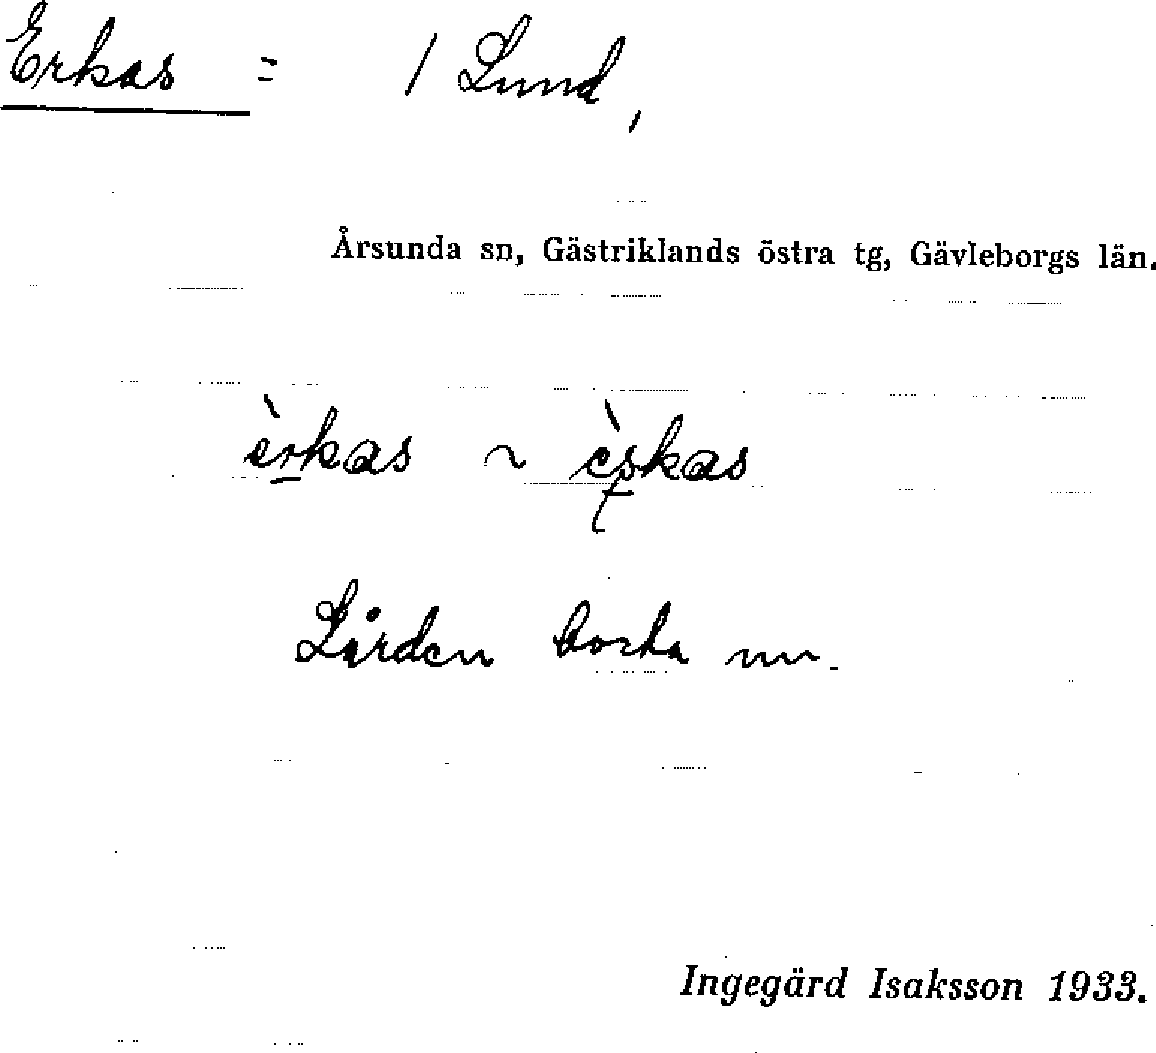 Erkas = 1 Lund,
Årsunda sn, Gästriklands östra tg, Gävleborgs län.
èrkas ~
Gården borta nu.
Ingegärd Isaksson 1933.